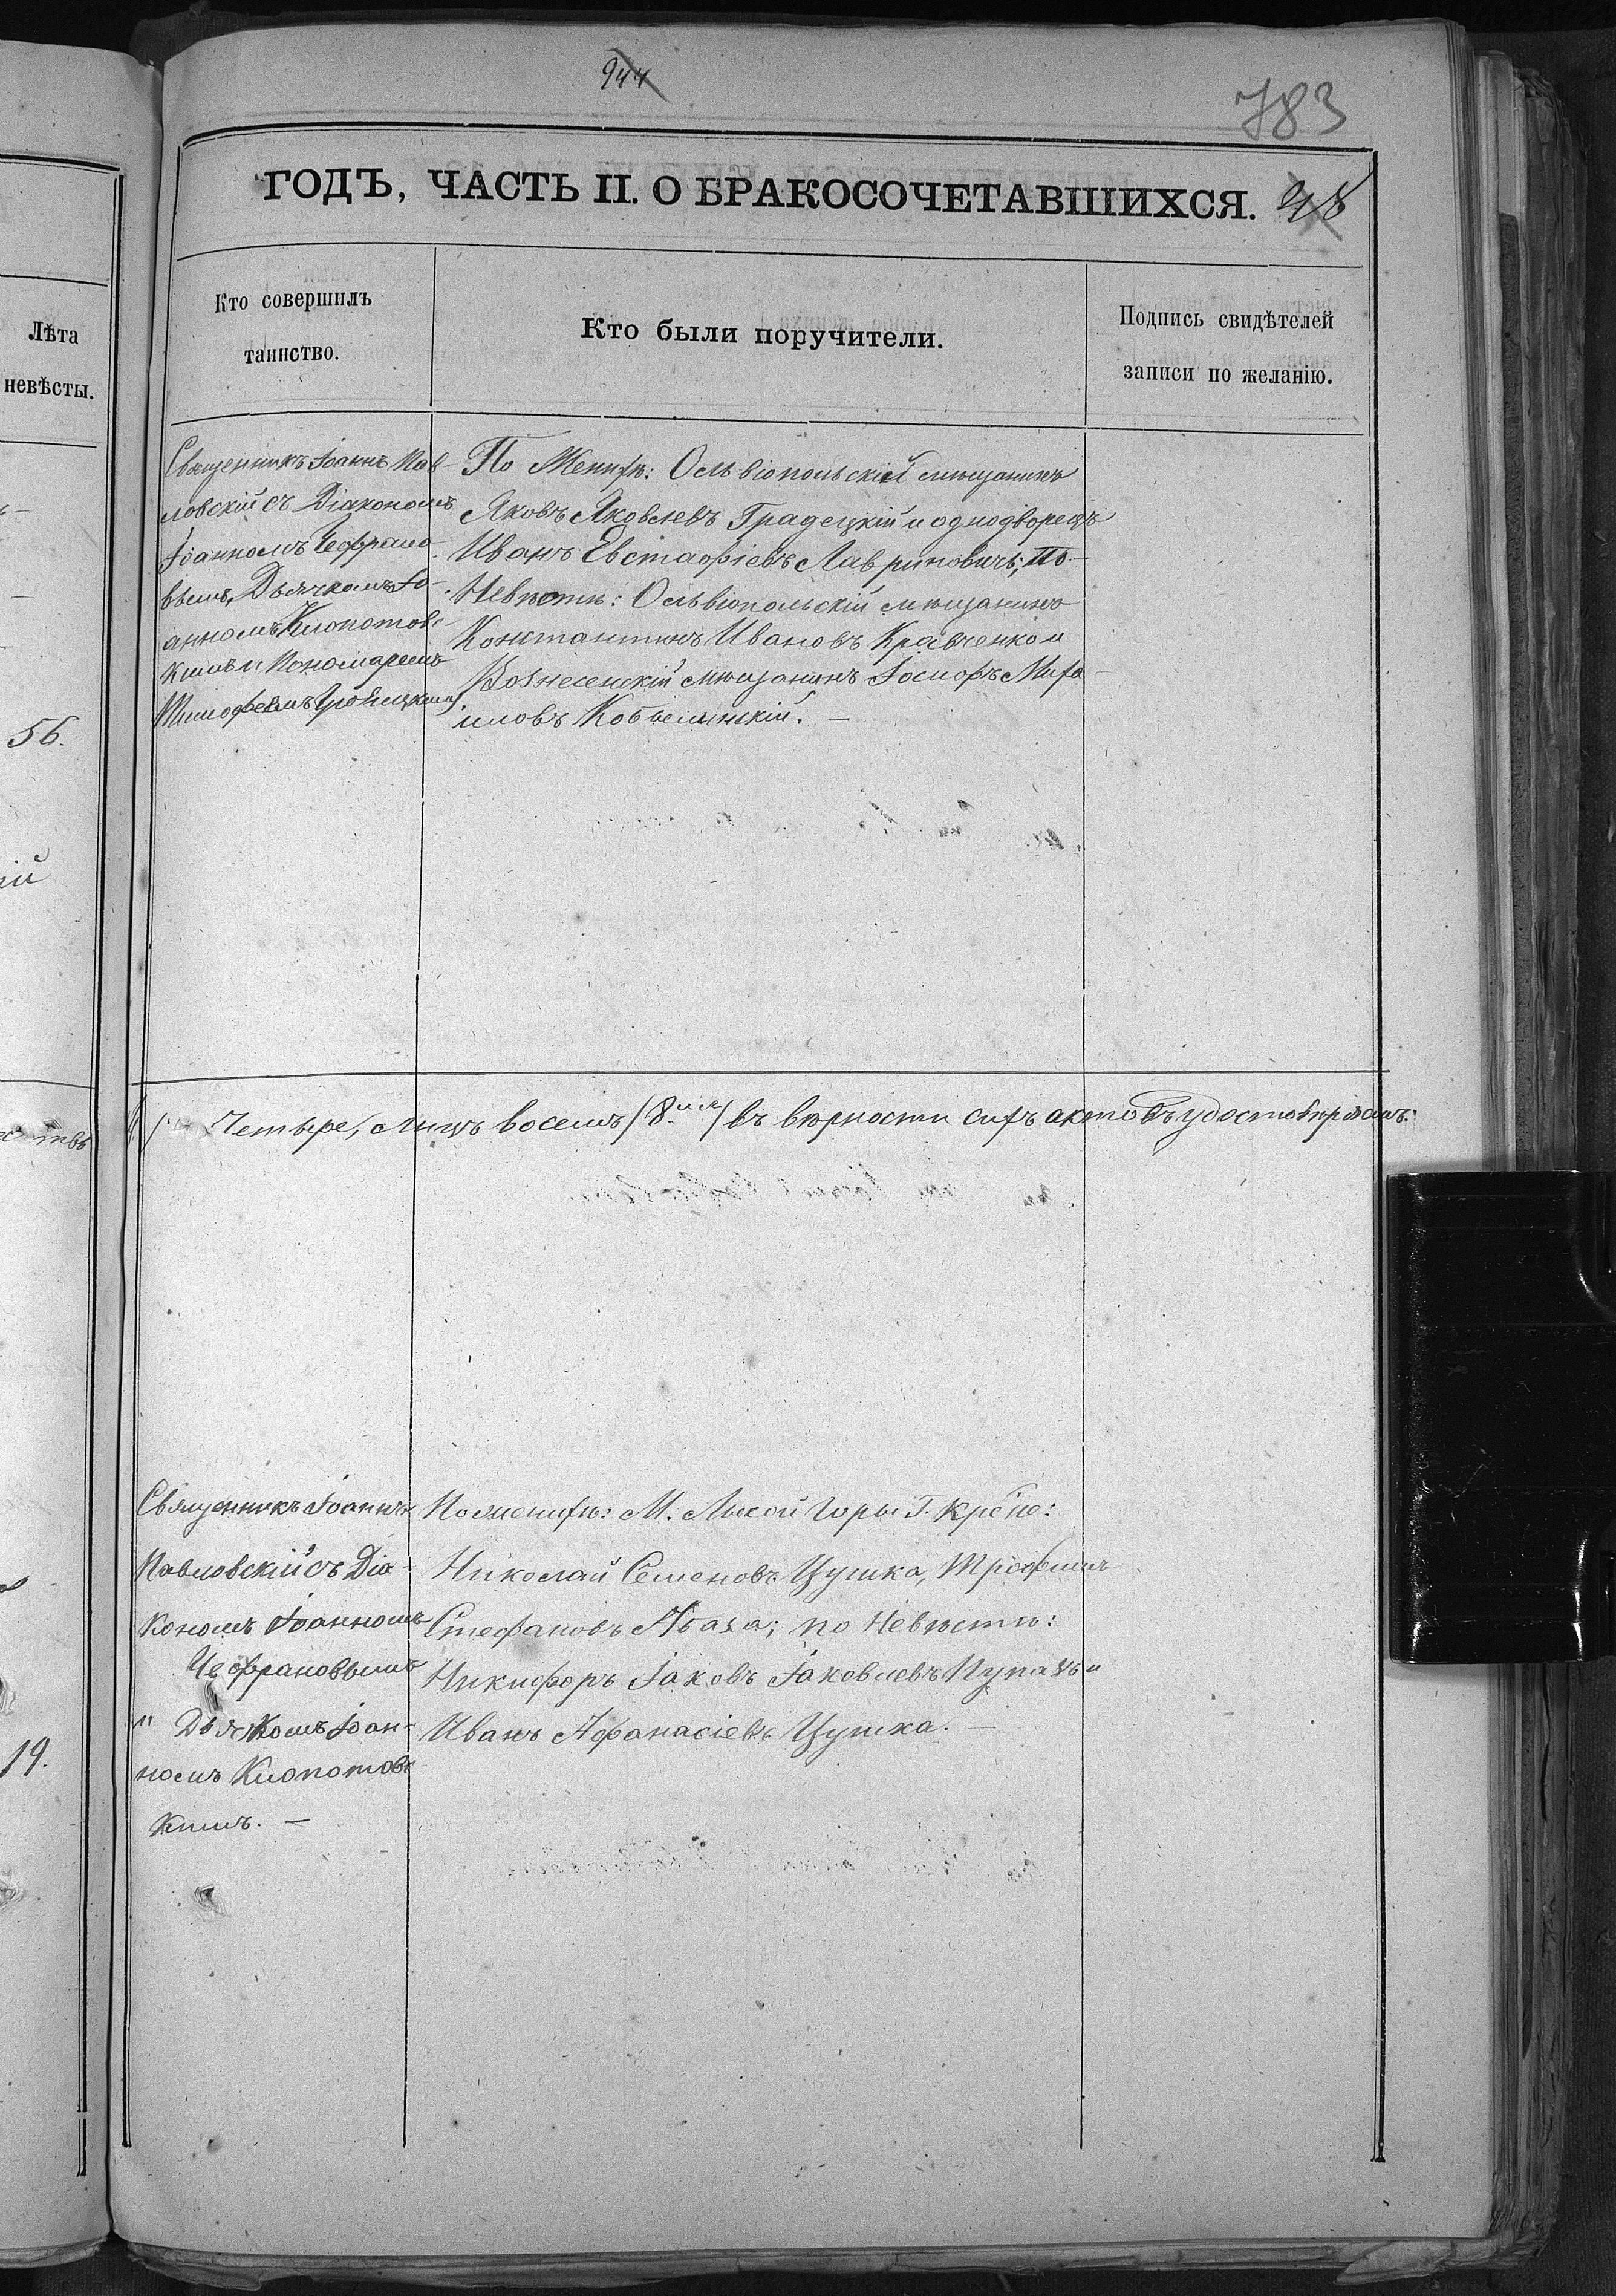 944
783
ГОДЪ, ЧАСТЬ II. О БРАКОСОЧЕТАВШИХСЯ. 48
Лѣта
невѣсты.
Кто совершилъ
таинство.
Кто были поручители.
Подпись свидѣтелей
записи по желанію.
56.
19.
Священникъ Іоаннъ Пав-
ловскій съ Діакономъ
Іоанномъ Чефрано-
вымъ, Дьячкомъ Іо-
анномъ Клопотовс-
кимъ и Пономаремъ
Тимофеемъ
По Женихѣ: Ольвіопольскій мѣщанинъ
Яковъ Яковлевъ Градецкій и однодворецъ
Иванъ Евстафіевъ Лавриновичъ; по
Невѣстѣ: Ольвіопольскій мѣщанинъ
Константинъ Ивановъ Кравченко и
Вознесенскій мѣщанинъ Іосифъ Миха-
иловъ Кобылинскій. —
Четыре, лицъ восемь (8) въ вѣрности сихъ актовъ удостовѣряемъ:
Священникъ Іоаннъ
Павловскій съ Діа-
кономъ Іоанномъ
Чефрановымъ
и Дьячкомъ Іоан-
номъ Клопотовс-
кимъ. —
По женихѣ: М. Лысой Горы Г. кр:
Николай Семеновъ Цушка, Трофимъ
Стефановъ по Невѣстѣ:
Никифоръ Іаковъ Іаковлевъ и
Иванъ Афанасіевъ Цушка. —